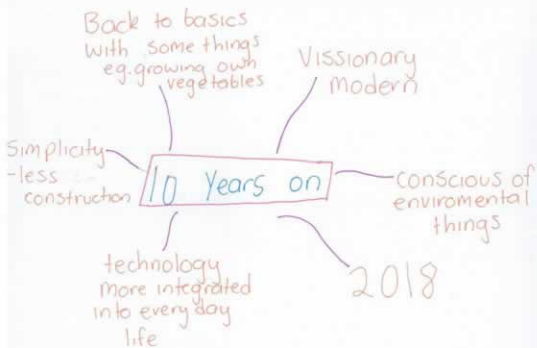 Back to basics
with some things
eg. growing own
vegetables
Vissionary
modern
Simplicity
-less
construction
10 Years on
conscious of
enviromental
things
technology
more integrated
into every day
life
2018